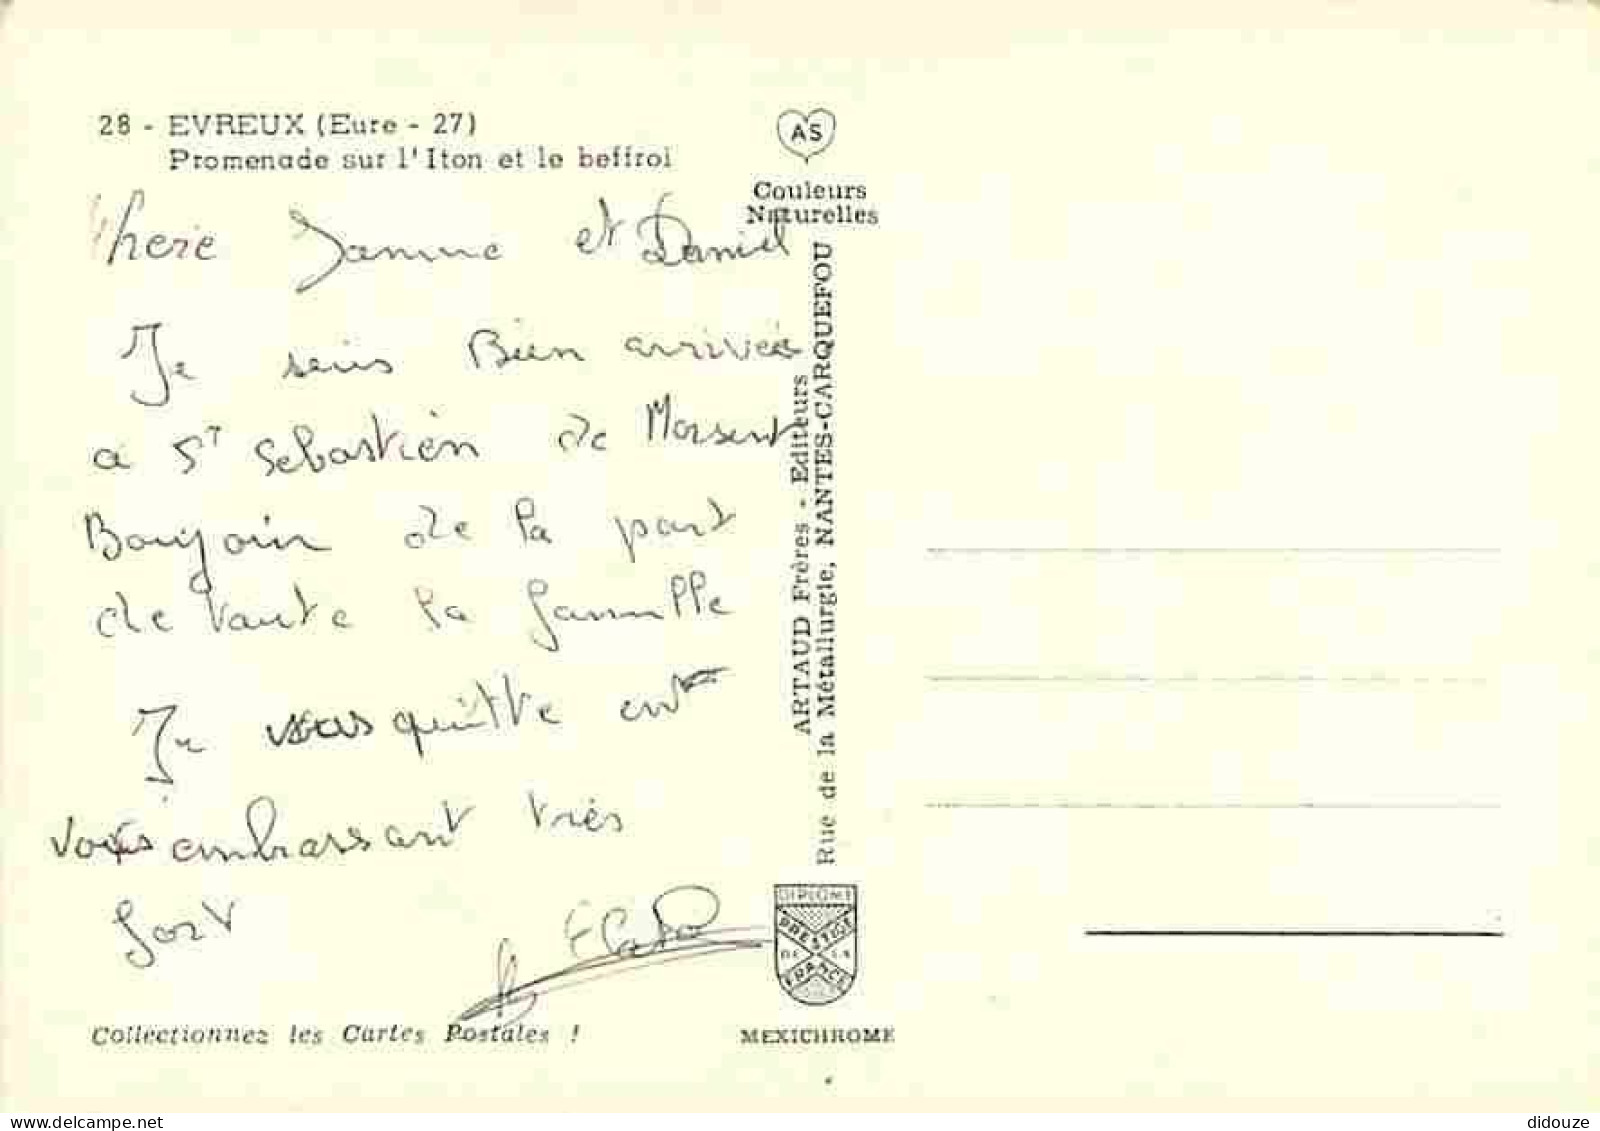 28 - EVREUX (Eure - 27)
Promenade sur l'Iton et le beffroi
AS
Couleurs
Naturelles
chere Janine et Daniel
Je suis Bien arrivée
a St Sebastien de Morsent
Bonjour de la part
de toute la famille
Je vous quitte en
vous embrassant très
fort
ARTAUD Frères - Editeurs
Rue de la Métallurgie, NANTES-CARQUEFOU
DIPLOME
PRESTIGE
DE LA
FRANCE
Collectionnez les Cartes Postales !
MEXICHROME
delcampe.net
didouze